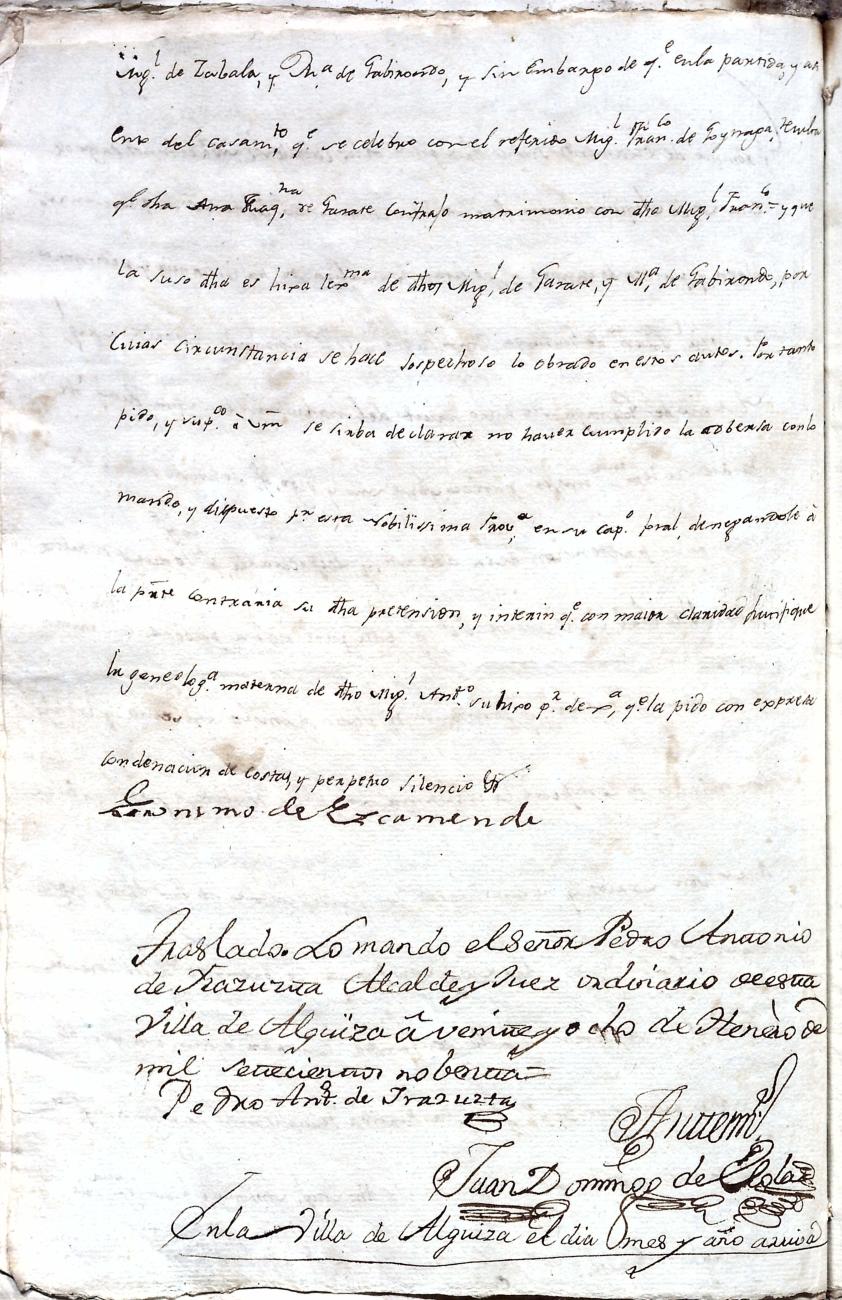 Mig.l de Zabala, y M.a de Gabirondo, y sin embargo de q.e en la partida, y
ento del casam.to q.e se celebro con el referido Mig.l Fran.co de Goynaga,
q.e dha Ana Joaq.na de Garate contrajo matrimonio con dho Mig.l Fran.co y que
la suso dha es hixa lex.ma de dhos Mig.l de Garate, y M.a de Gabirondo, por
Cuias circunstancia se hace sospechoso lo obrado en estos autos. Por tanto
pido, y sup.co â Vm se sirba declarar no haver cumplido la adbersa con lo
mando, y dispuesto p.r esta Nobilissima Prov.a en su cap.o pral, denegandole â
la pñte Contraria su dha pretension, y interin q.e con maior claridad justifique
la geneolog.a materna de dho Mig.l Ant.o su hixo p.r de q.e la pido con expresa
Condenacion de costas, y perpetuo silencio &
Geronimo de Ezcamendi
Traslado. Lo mando el Señor Pedro Antonio
de Irazuzta Alcalde y Juez ordinario de esta
Villa de Alquiza â veinte y ocho de Henèro de
mil settecientos nobentta =
Pedro Ant.o de Irazuzta
Anttemi
Juan Domingo de
En la Villa de Alquiza el dia mes y año arriva